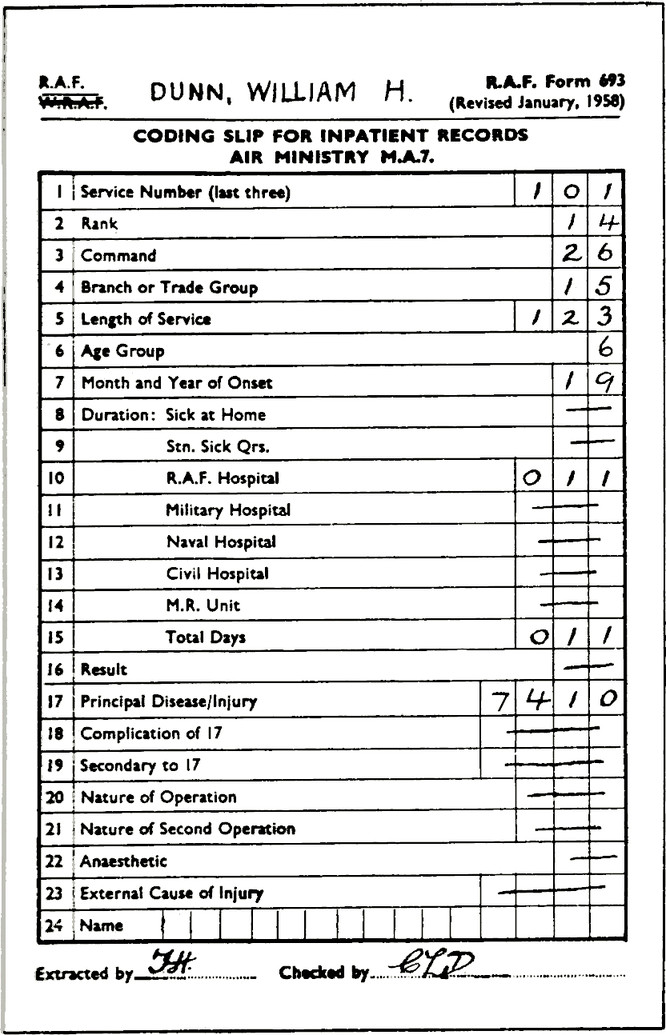 R.A.F.
W.R.A.F.
DUNN, WILLIAM H.
R.A.F. Form 693
(Revised January, 1958)
CODING SLIP FOR INPATIENT RECORDS
AIR MINISTRY M.A.7.
1 Service Number (last three) 1 0 1
2 Rank 1 4
3 Command 2 6
4 Branch or Trade Group 1 5
5 Length of Service 1 2 3
6 Age Group 6
7 Month and Year of Onset 1 9
8 Duration: Sick at Home —
9 Stn. Sick Qrs. —
10 R.A.F. Hospital 0 1 1
11 Military Hospital —
12 Naval Hospital —
13 Civil Hospital —
14 M.R. Unit —
15 Total Days 0 1 1
16 Result —
17 Principal Disease/Injury 7 4 1 0
18 Complication of 17 —
19 Secondary to 17 —
20 Nature of Operation —
21 Nature of Second Operation —
22 Anaesthetic —
23 External Cause of Injury —
24 Name
Extracted by J.H. Checked by CLD